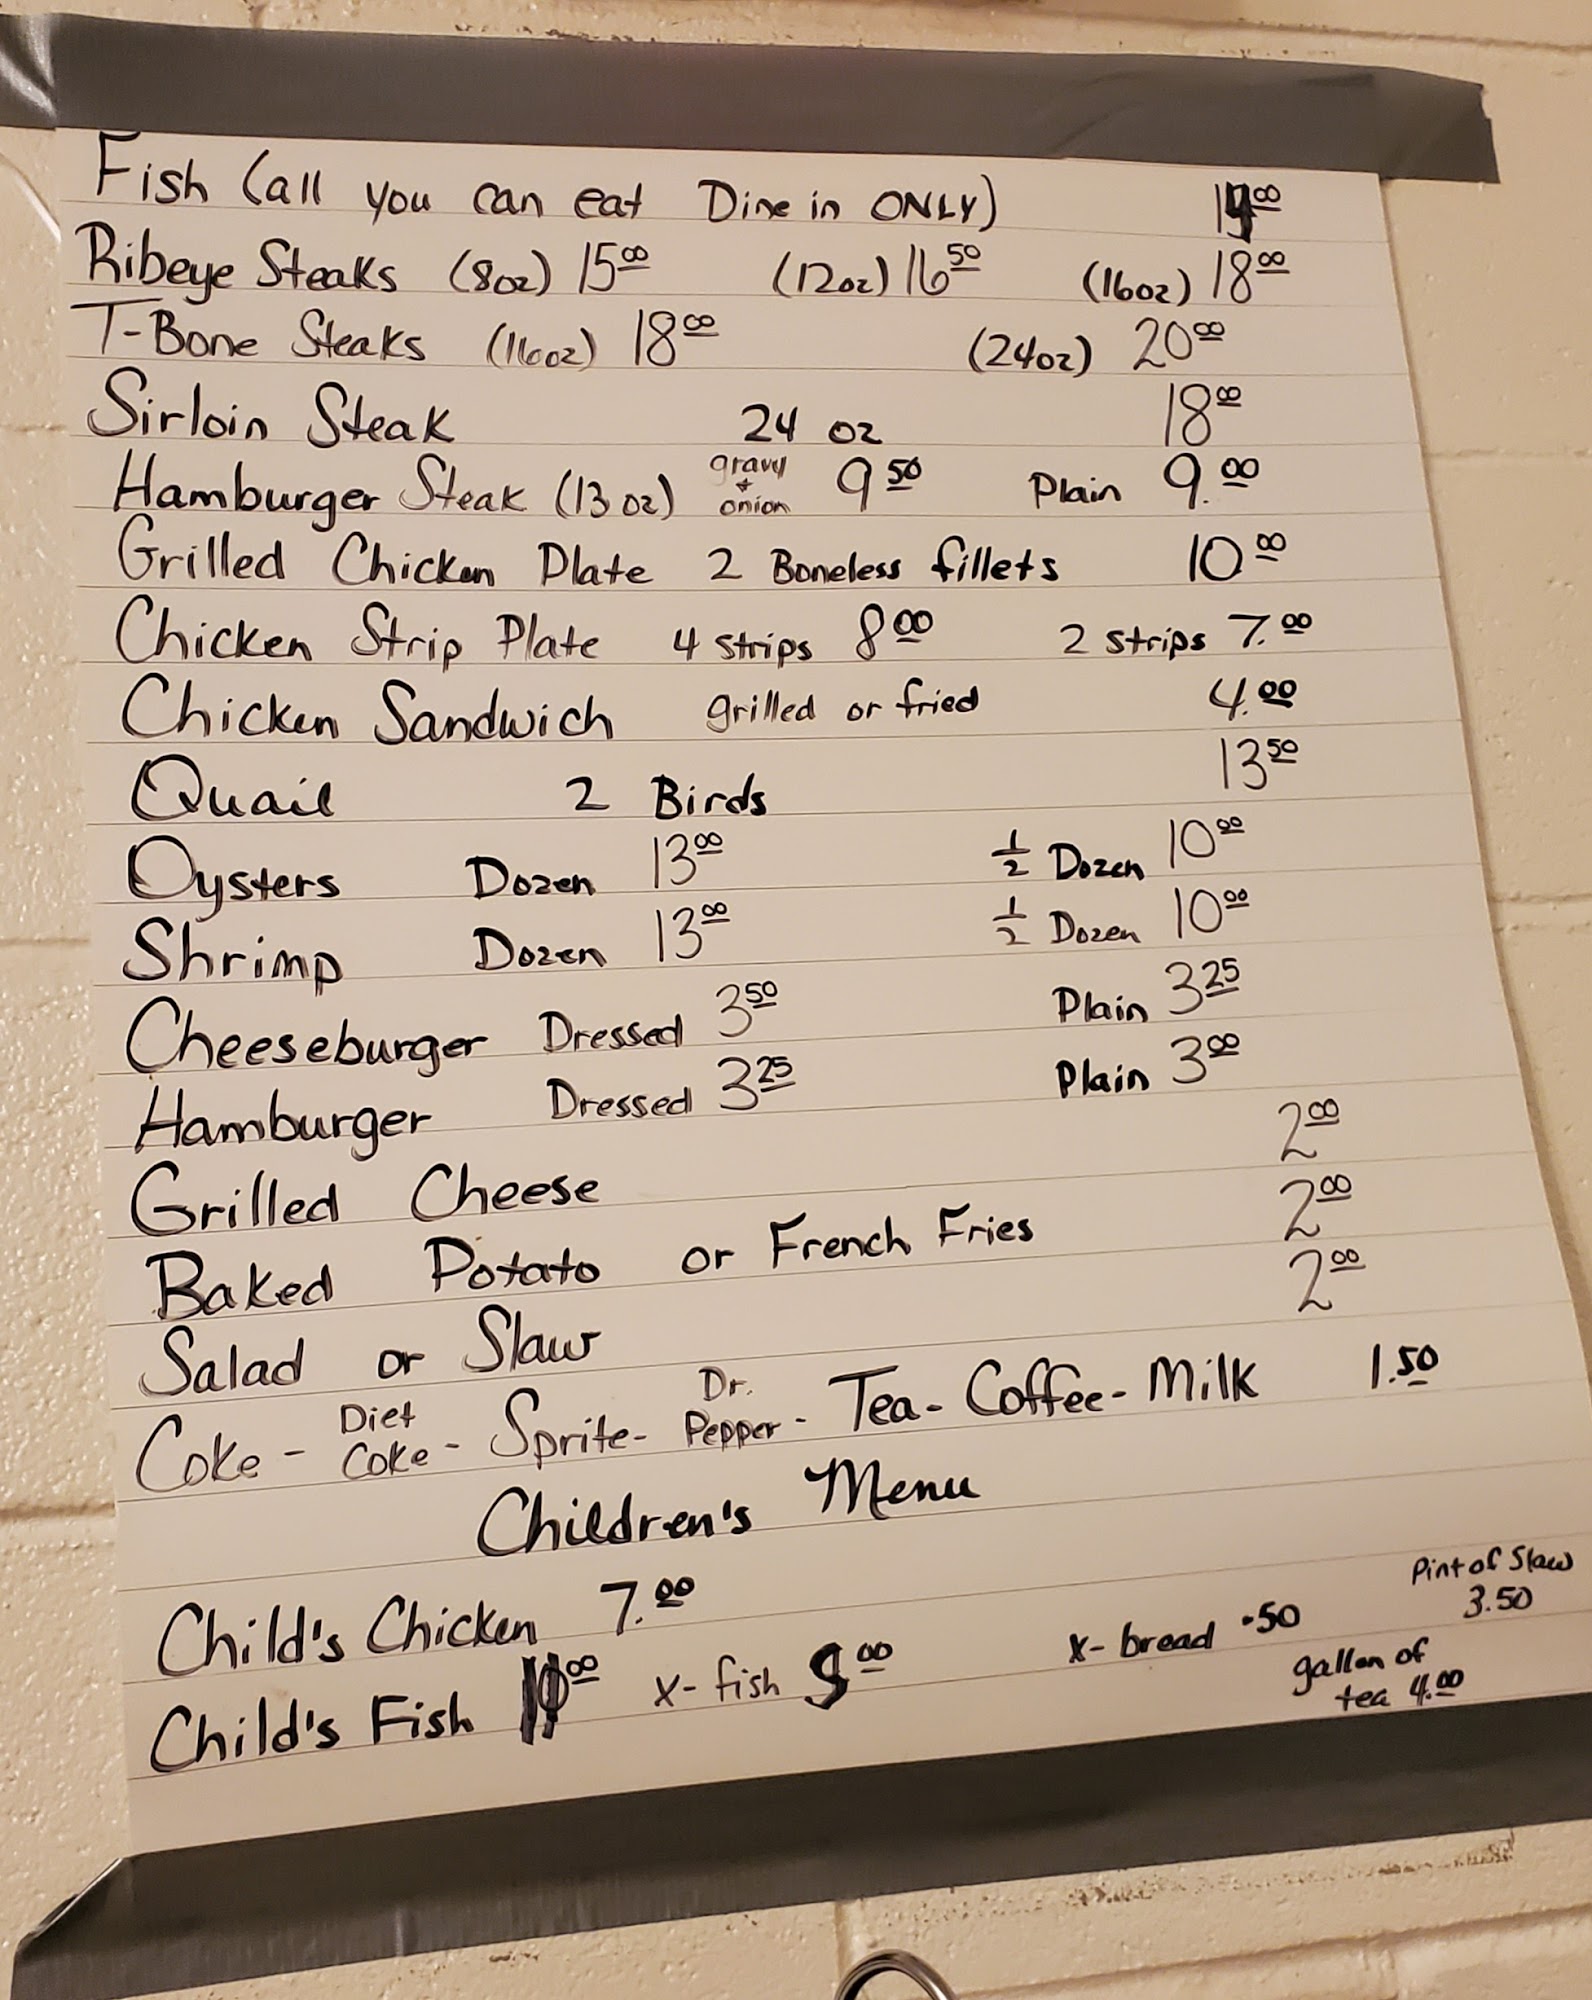 Fish (all you can eat Dine in ONLY) 14 00
Ribeye Steaks (8oz) 15 00 (12oz) 16 50 (16oz) 18 00
T-Bone Steaks (16oz) 18 00 (24oz) 20 00
Sirloin Steak 24 oz 18 00
Hamburger Steak (13 oz) gravy + onion 9 50 Plain 9.00
Grilled Chicken Plate 2 Boneless fillets 10 00
Chicken Strip Plate 4 strips 8 00 2 strips 7.00
Chicken Sandwich grilled or fried 4.00
Quail 2 Birds 13 50
Oysters Dozen 13 00 1/2 Dozen 10 00
Shrimp Dozen 13 00 1/2 Dozen 10 00
Cheeseburger Dressed 3 50 Plain 3 25
Hamburger Dressed 3 25 Plain 3 00
Grilled Cheese 2 00
Baked Potato or French Fries 2 00
Salad or Slaw 2 00
Coke - Diet Coke - Sprite - Dr. Pepper - Tea - Coffee - Milk 1.50
Children's Menu
Child's Chicken 7.00
Child's Fish 00 x-fish 00
x-bread .50
Pint of Slaw
3.50
gallon of
tea 4.00